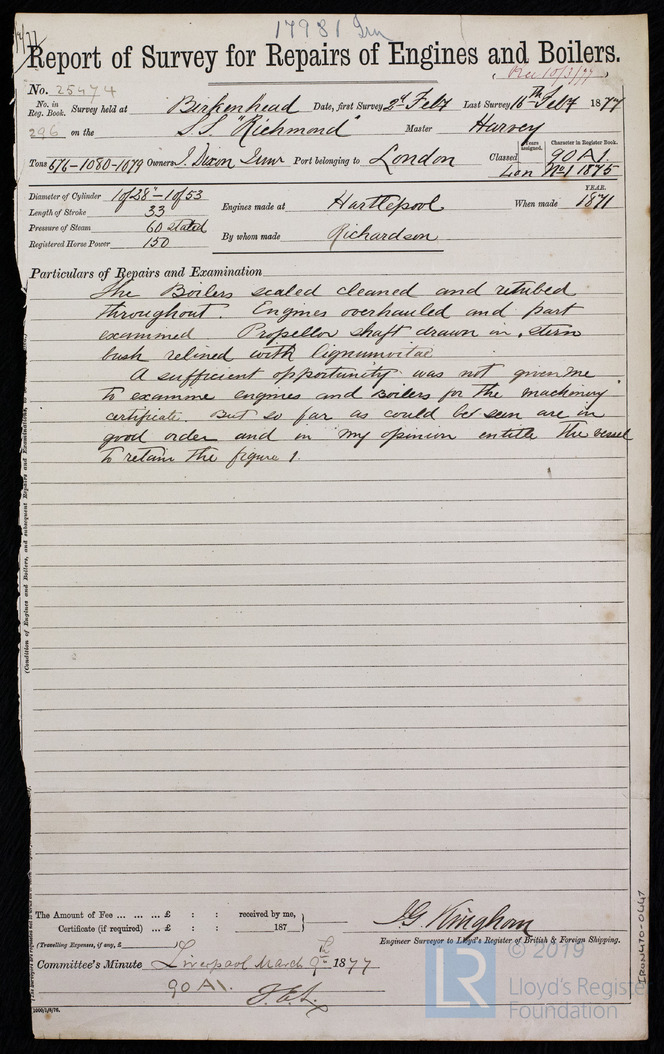 17981 Irn
Report of Survey for Repairs of Engines and Boilers.
Rec 10/3/77
No. 25474
No. in Reg. Book. Survey held at Birkenhead Date, first Survey 2d Feby Last Survey 16th Feby 1877
296 on the S.S. "Richmond" Master Harvey
Tons 676-1080-1079 Owners J. Dixon Junr Port belonging to London Classed Years assigned. Character in Register Book. 90 A1.
Lon No1 1875
Diameter of Cylinder 1 of 28"-1 of 53 Engines made at Hartlepool When made YEAR. 1871
Length of Stroke 33
Pressure of Steam 60 stated By whom made Richardson
Registered Horse Power 150
Particulars of Repairs and Examination
The Boilers scaled cleaned and retubed
throughout. Engines overhauled and part
examined Propellor shaft drawn in, stern
bush relined with lignumvitae
A sufficient opportunity was not given me
to examine engines and boilers for the machinery
certificate. But so far as could be seen are in
good order and in my opinion entitle the vessel
to retain the figure 1.
(Condition of Engines and Boilers, and subsequent Repairs and Examinations,
The Amount of Fee ... ... ... £ : : received by me,
Certificate (if required) ... £ : : 187
(Travelling Expenses, if any, £ )
J G Kinghorn
Engineer Surveyor to Lloyd's Register of British & Foreign Shipping.
Committee's Minute Liverpool March 9th 1877
90 A1.
IRON470-0447
LR
© 2019
Lloyd's Register
Foundation